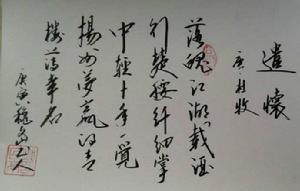 遣懷
唐·杜牧
落魄江湖載酒
行楚腰纤細掌
中輕十年一覺
揚州夢贏得青
樓薄幸名
庚寅穐